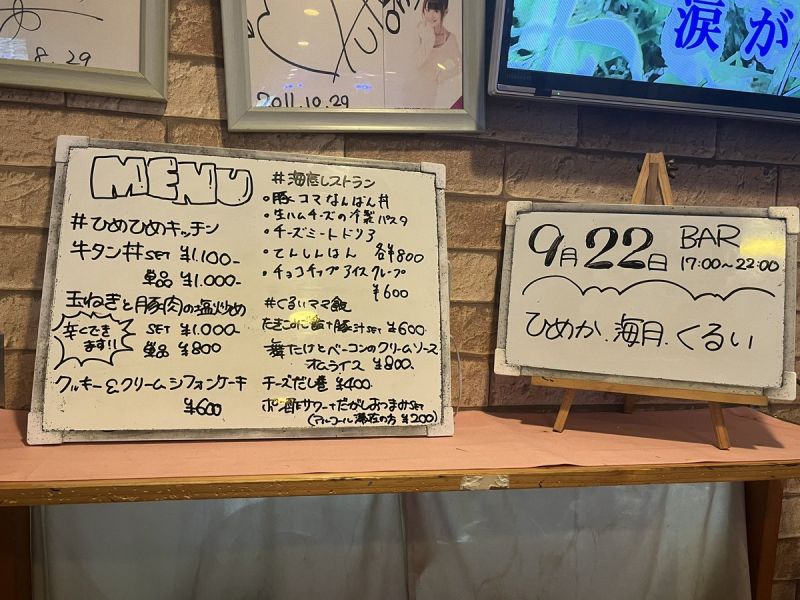 8.29
2011.10.29
涙が
MENU
#ひめひめキッチン
牛タン丼SET ¥1,100-
単品 ¥1,000-
玉ねぎと豚肉の塩炒め
辛くでき
ます!!
SET ¥1,000-
単品 ¥800
クッキー&クリームシフォンケーキ
¥600
#海底レストラン
・豚コマなんばん丼
・生ハムチーズの冷製パスタ
・チーズミートドリア
・てんしんはん 各¥800
・チョコチップアイスクレープ
¥600
#くるいママ飯
たきこみご飯+豚汁SET ¥600
舞たけとベーコンのクリームソース
オムライス ¥800.
チーズだし巻 ¥400.
ポン酢サワー+だがしおつまみSET
(アルコール滞在の方 ¥200)
9月22日 BAR
17:00~22:00
ひめか.海月.くるい